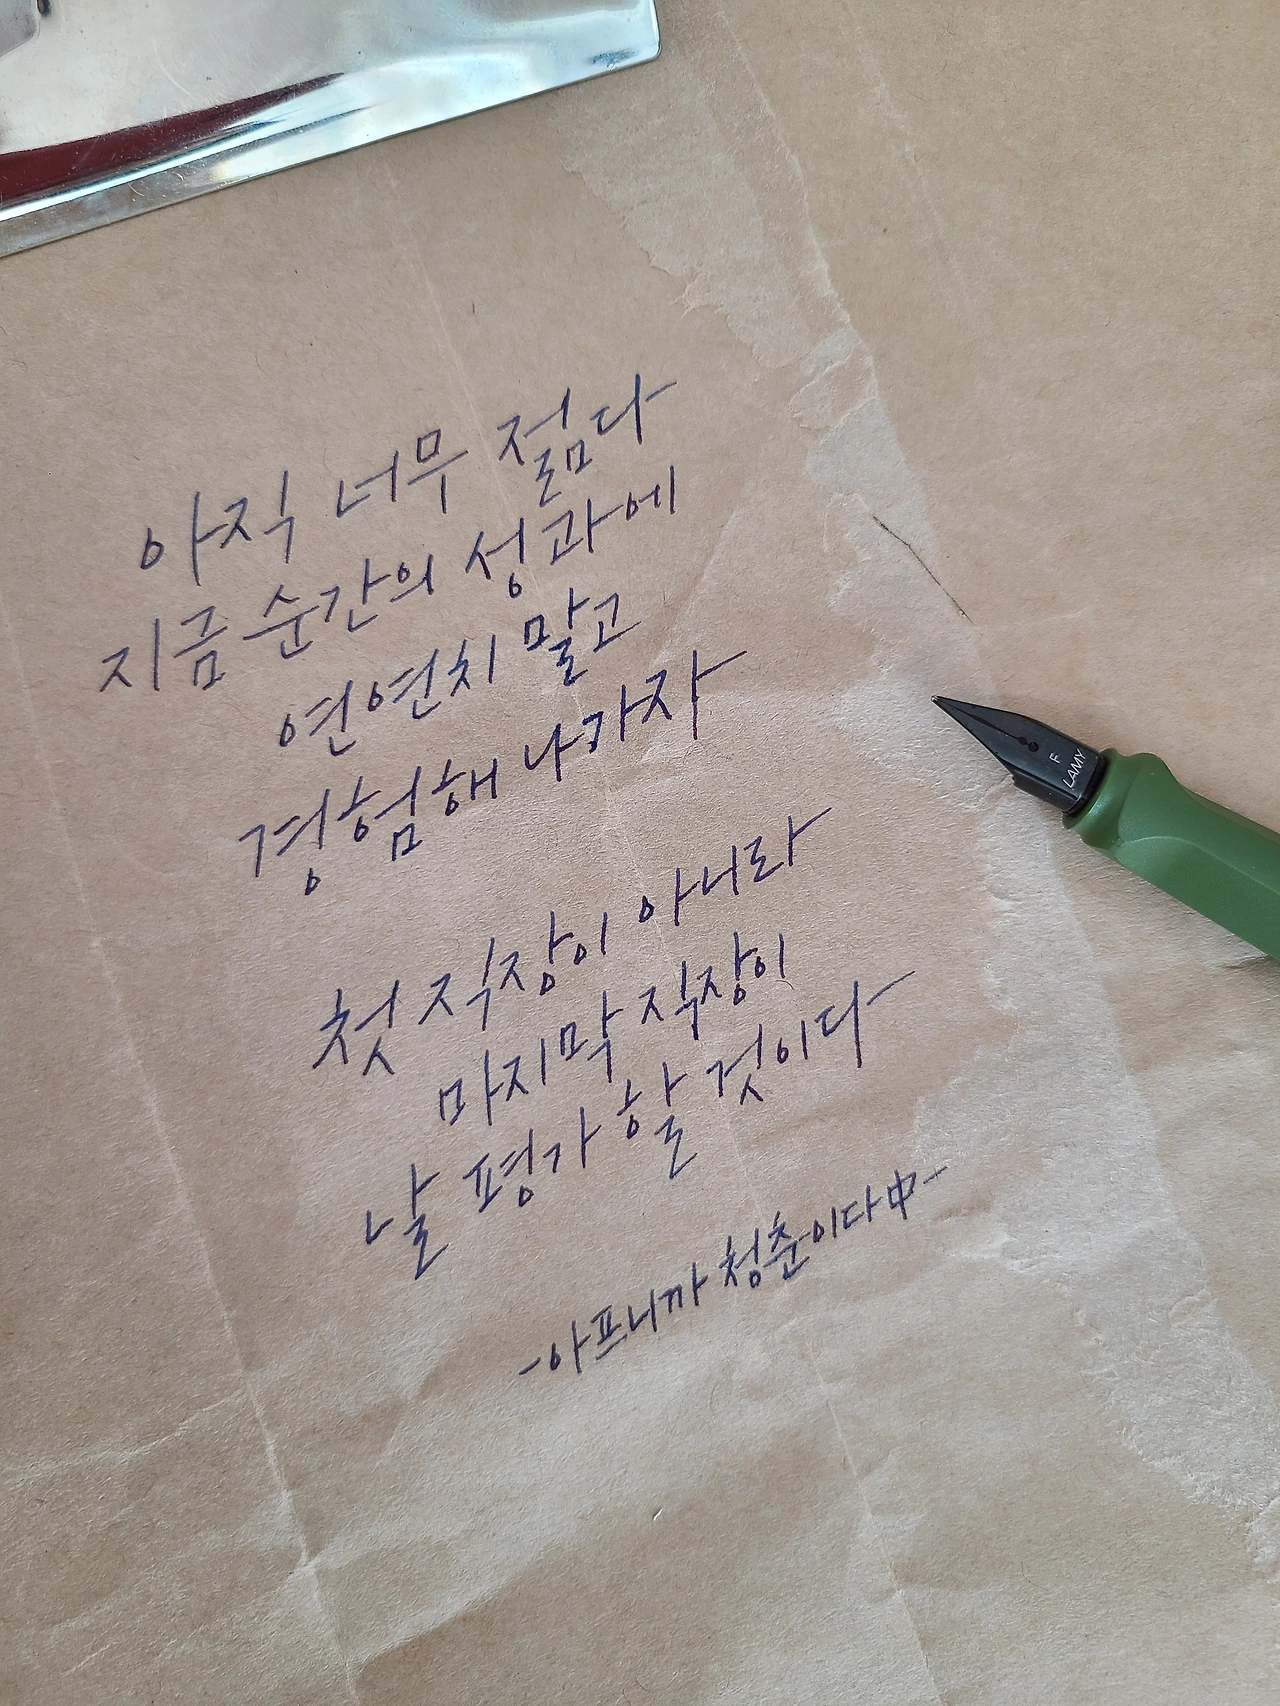 아직 너무 젊다
지금 순간의 성과에
연연치 말고
경험해 나가자
첫 직장이 아니라
마지막 직장이
날 평가 할 것이다
-아프니까 청춘이다 中-
F
LAMY